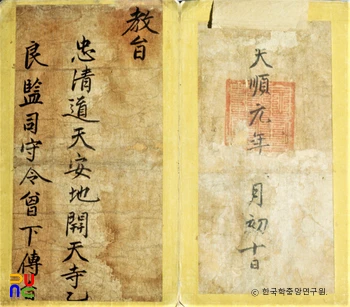 教旨
忠清道天安地開天寺乙
良監司守令曾下傳
天順元年 月初十日
© 한국학중앙연구원